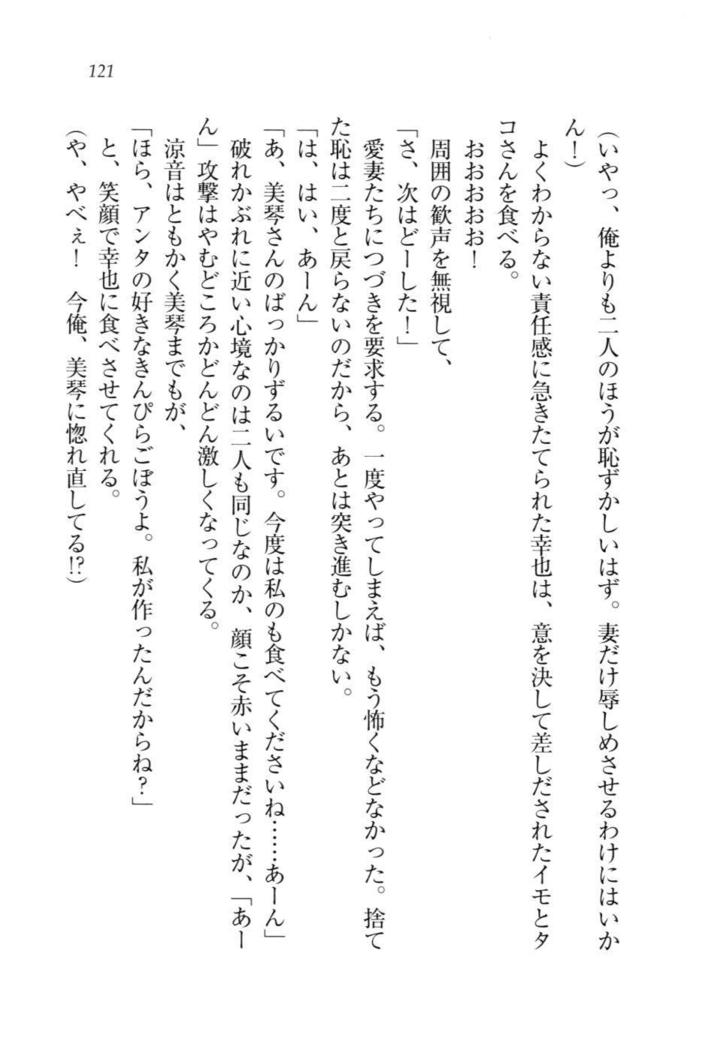 121
（いやっ、俺よりも二人のほうが恥ずかしいはず。妻だけ辱しめさせるわけにはいか
ん！）
　よくわからない責任感に急きたてられた幸也は、意を決して差しだされたイモとタ
コさんを食べる。
　おおおおお！
　周囲の歓声を無視して、
「さ、次はどーした！」
　愛妻たちにつづきを要求する。一度やってしまえば、もう怖くなどなかった。捨て
た恥は二度と戻らないのだから、あとは突き進むしかない。
「は、はい、あーん」
「あ、美琴さんのばっかりずるいです。今度は私のも食べてくださいね……あーん」
　破れかぶれに近い心境なのは二人も同じなのか、顔こそ赤いままだったが、「あー
ん」攻撃はやむどころかどんどん激しくなってくる。
　涼音はともかく美琴までもが、
「ほら、アンタの好きなきんぴらごぼうよ。私が作ったんだからね？」
　と、笑顔で幸也に食べさせてくれる。
（や、やべぇ！　今俺、美琴に惚れ直してる!?）